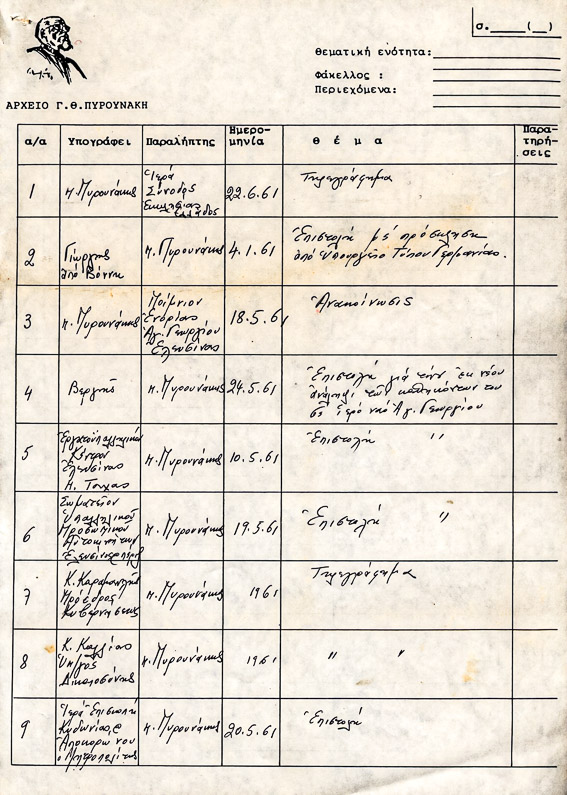 σ.____(__)
Θεματική ενότητα:
Φάκελλος :
Περιεχόμενα:
ΑΡΧΕΙΟ Γ.Θ.ΠΥΡΟΥΝΑΚΗ
α/α Υπογράφει Παραλήπτης Ημερο-
μηνία Θ έ μ α Παρα-
τηρή-
σεις
1 π. Πυρουνάκης Ἱερά
Σύνοδος
Εκκλησίας
Ελλάδος 22.6.61 Τηλεγράφημα
2 Γιώργης
ἀπό Βόννη π. Πυρουνάκης 4.1.61 Ἐπιστολή μέ πρόσκληση
ἀπό Υπουργείο Τύπου Γερμανίας.
3 π. Πυρουνάκης Ποίμνιον
Ἐνορίας
Ἁγ. Γεωργίου
Ἐλευσίνας 18.5.61 Ἀνακοίνωσις
4 Βεργής π. Πυρουνάκης 24.5.61 Ἐπιστολή γιά τήν ἐκ νέου
ἀνάληψι τῶν καθηκόντων του
σε ἱερό ναό Ἁγ. Γεωργίου
5 Ἐργατοϋπαλληλικόν
Κέντρον
Ἐλευσίνας
π. Πυρουνάκης 10.5.61 Ἐπιστολή "
6 Σωματεῖον
Ὑπαλληλικοῦ
Προσωπικοῦ
π. Πυρουνάκης 19.5.61 Ἐπιστολή "
7 Κ. Καραμανλής
Πρόεδρος
Κυβερνήσεως π. Πυρουνάκης 1961 Τηλεγράφημα
8 Κ. Καλλίας
Ὑπ/γός
Δικαιοσύνης π. Πυρουνάκης 1961 " "
9 Ἱερά Ἐπισκοπή
Κυδωνίας &
Ἀποκορώνου
ὁ Μητροπολίτης π. Πυρουνάκης 20.5.61 Ἐπιστολή